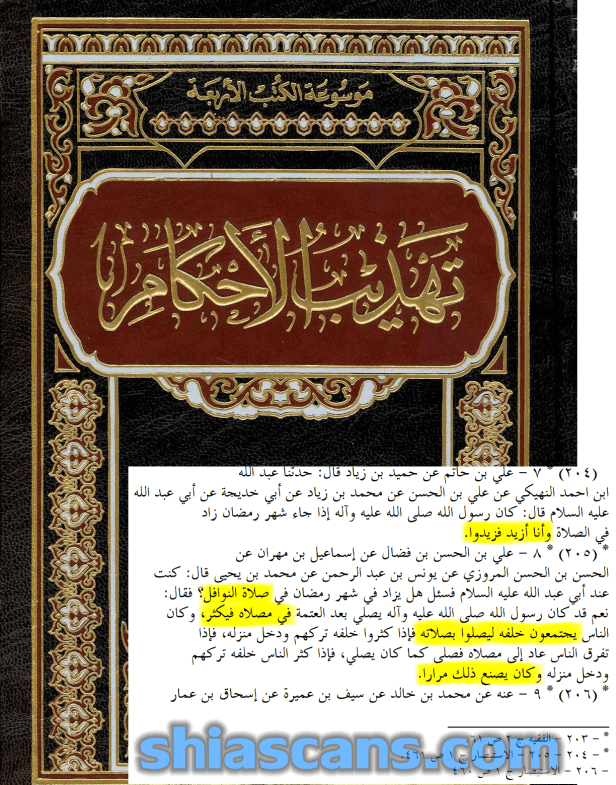 موسوعة الكتب الأربعة
تهذيب الأحكام
(٢٠٤) * ٧ - علي بن حاتم عن حميد بن زياد قال: حدثنا عبد الله
ابن احمد النهيكي عن علي بن الحسن عن محمد بن زياد عن أبي خديجة عن أبي عبد الله
عليه السلام قال: كان رسول الله صلى الله عليه وآله إذا جاء شهر رمضان زاد
في الصلاة وأنا أزيد فزيدوا.
* (٢٠٥) * ٨ - علي بن الحسن بن فضال عن إسماعيل بن مهران عن
الحسن بن الحسن المروزي عن يونس بن عبد الرحمن عن محمد بن يحيى قال: كنت
عند أبي عبد الله عليه السلام فسئل هل يزاد في شهر رمضان في صلاة النوافل؟ فقال:
نعم قد كان رسول الله صلى الله عليه وآله يصلي بعد العتمة في مصلاه فيكثر، وكان
الناس يجتمعون خلفه ليصلوا بصلاته فإذا كثروا خلفه تركهم ودخل منزله، فإذا
تفرق الناس عاد إلى مصلاه فصلى كما كان يصلي، فإذا كثر الناس خلفه تركهم
ودخل منزله وكان يصنع ذلك مرارا.
* (٢٠٦) * ٩ - عنه عن محمد بن خالد عن سيف بن عميرة عن إسحاق بن عمار
* - ٢٠٣ - الفقيه ج ٢ ص ٦١.
* - ٢٠٤ - ٢٠٥ - الاستبصار ج ١ ص ٤٦١.
- ٢٠٦ - الاستبصار ج ١ ص ٤٦٠
shiascans.com